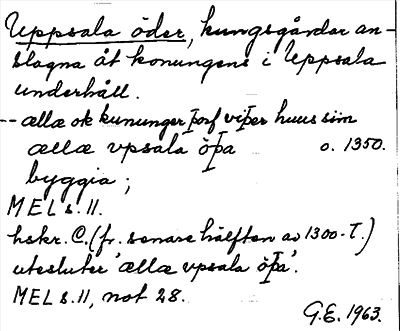 Uppsala öder, kungsgårdar an-
slagna åt konungens i Uppsala
underhåll.
-- ællæ ok kununger þorf viþer huus sim
ællæ vpsala öþa o. 1350.
byggia ;
MEL s. 11.
hskr. C. (fr. senare hälften av 1300-T.)
utesluter 'ællæ vpsala öþa'.
MEL s. 11, not 28.
G.E. 1963.